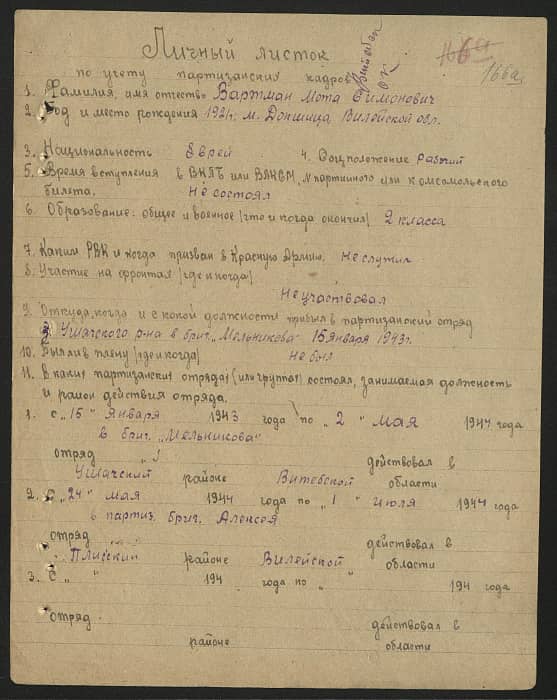 Личный листок
по учету партизанских кадров
166а
1. Фамилия, имя отчество Вартман Мота Симонович
2. Год и место рождения 1921г. м. Докшица, Вилейской обл.
3. Национальность Еврей 4. Соцположение Рабочий
5. Время вступления в ВКПб или ВЛКСМ, № партийного или комсомольского
билета. Не состоял
6. Образование: общее и военное /что и когда окончил/ 2 класса
7. Каким РВК и когда призван в Красную Армию. Не служил
8. Участие на фронтах /где и когда/
Не участвовал
9. Откуда, когда и с какой должности прибыл в партизанский отряд
Ушачского р-на в бриг. „Мельникова" 15 января 1943г.
10. Был ли в плену /где и когда/ не был
11. В каких партизанских отрядах (или группах) состоял, занимаемая должность
и район действия отряда.
1. с „15" Января 1943 года по „2" мая 1944 года
в бриг. „Мельникова"
отряд действовал в
Ушачский районе Витебской области
2. С „24" мая 1944 года по „1" июля 1944 года
в партиз. бриг. Алексея
отряд действовал в
Плисский районе Вилейской области
3. С „ " 194 года по „ " 194 года
отряд действовал в
районе области